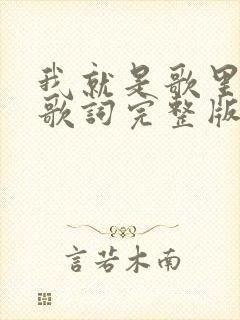 我就是歌里
歌詞完整版
言若木南